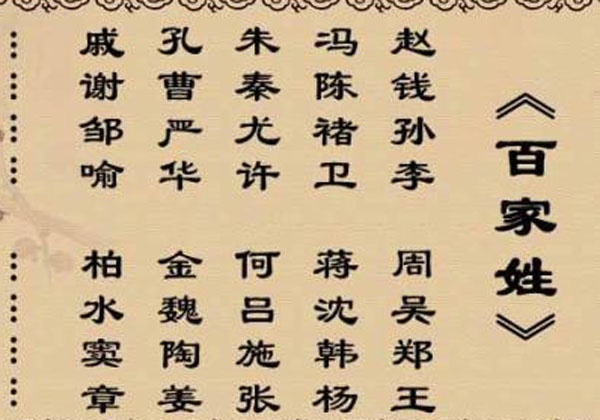 《百家姓》
赵钱孙李 周吴郑王
冯陈褚卫 蒋沈韩杨
朱秦尤许 何吕施张
孔曹严华 金魏陶姜
戚谢邹喻 柏水窦章
………… …………